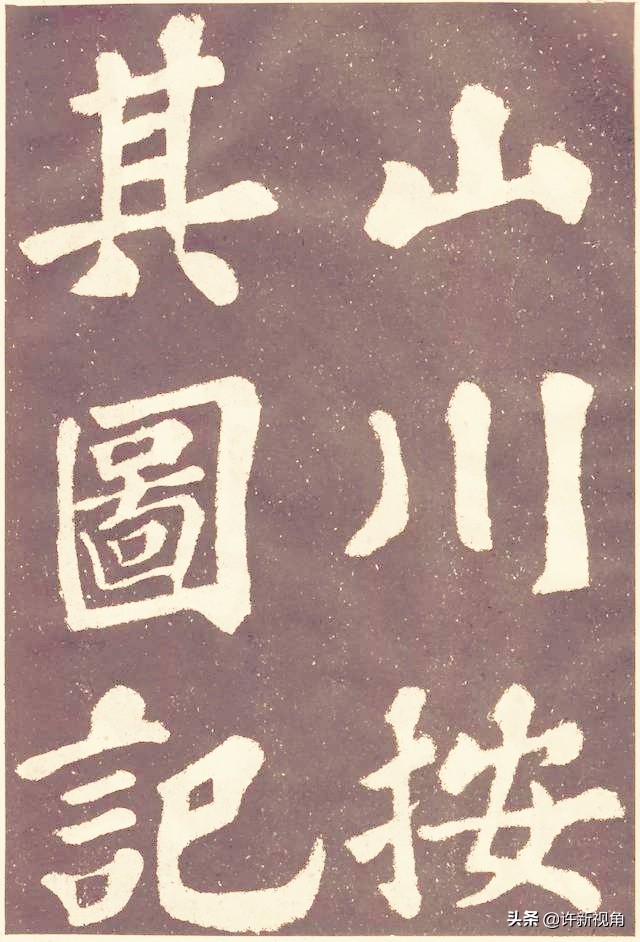 山川按
其圖記
头条 @许新视角